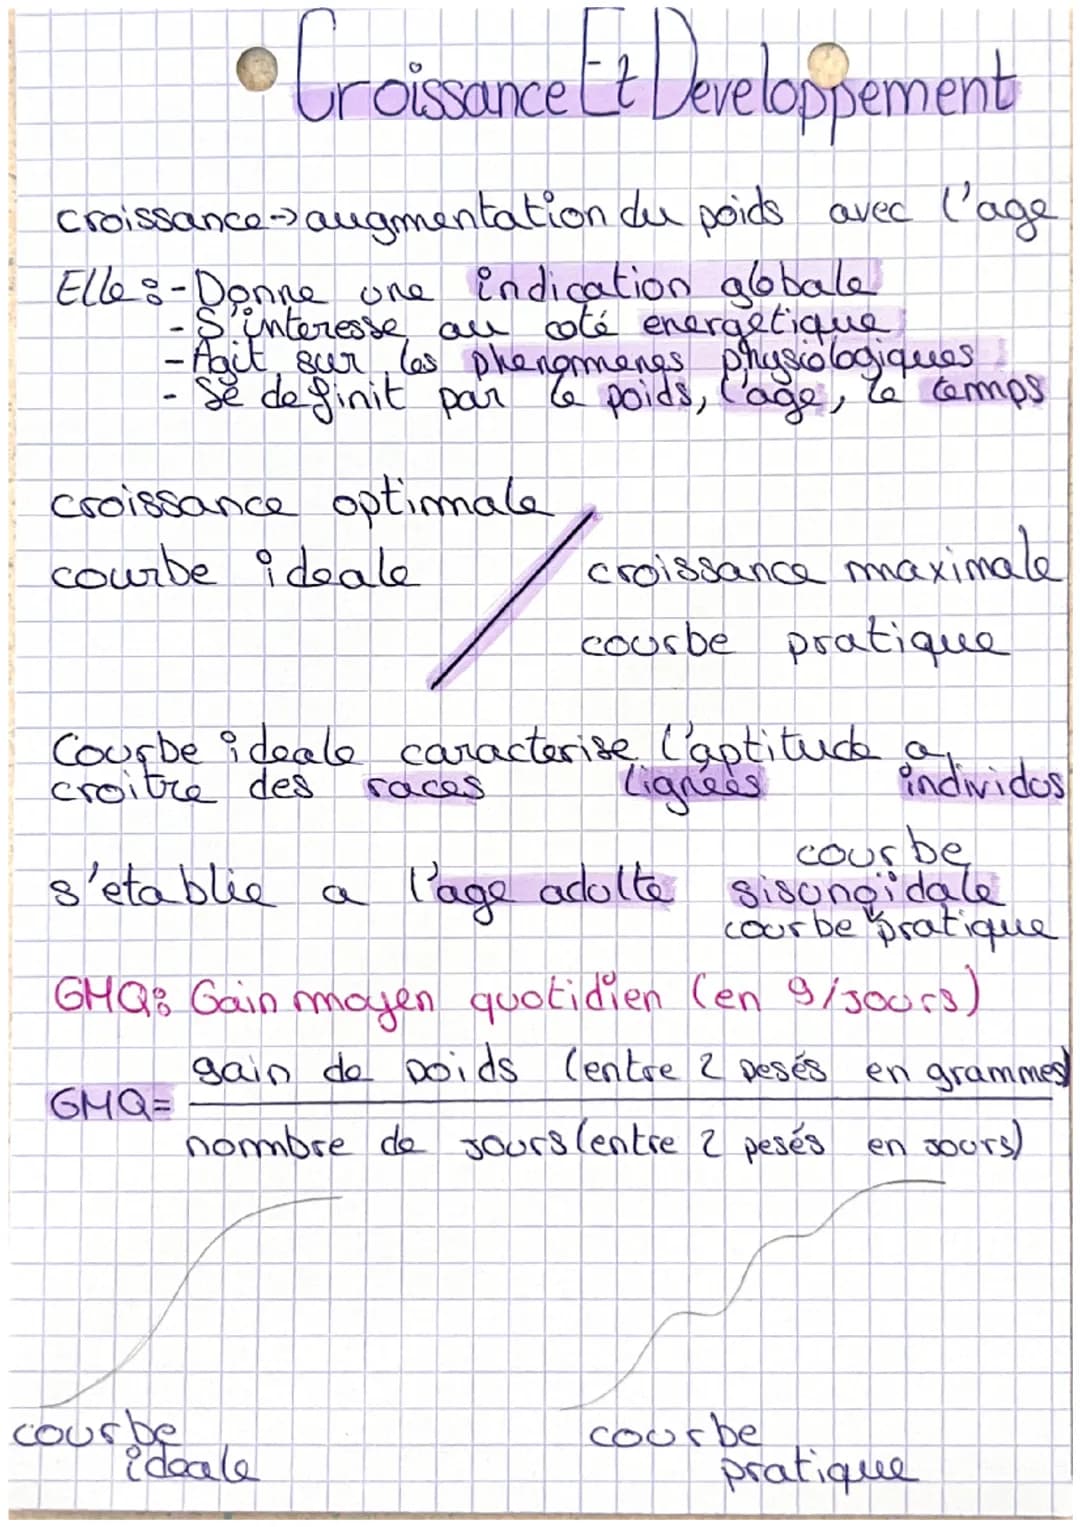 Croissance Et Developpement
croissance→augmentation du poids avec l'age
Elle :-Donne une indication globale
-S'interesse au coté energetique
-Agit sur les phenomenes physiologiques
- Se definit par le poids, l'age, le temps
croissance optimale
courbe ideale
croissance maximale
courbe pratique
Courbe ideale caracterise l'aptitude a
croitre des races lignées individus
s'etablie a l'age adulte
courbe
sisunoïdale
courbe pratique
GMQ: Gain moyen quotidien (en g/jours)
GMQ=
gain de poids (entre 2 pesés en grammes)
nombre de jours (entre 2 pesés en jours)
courbe
ideale
courbe
pratique